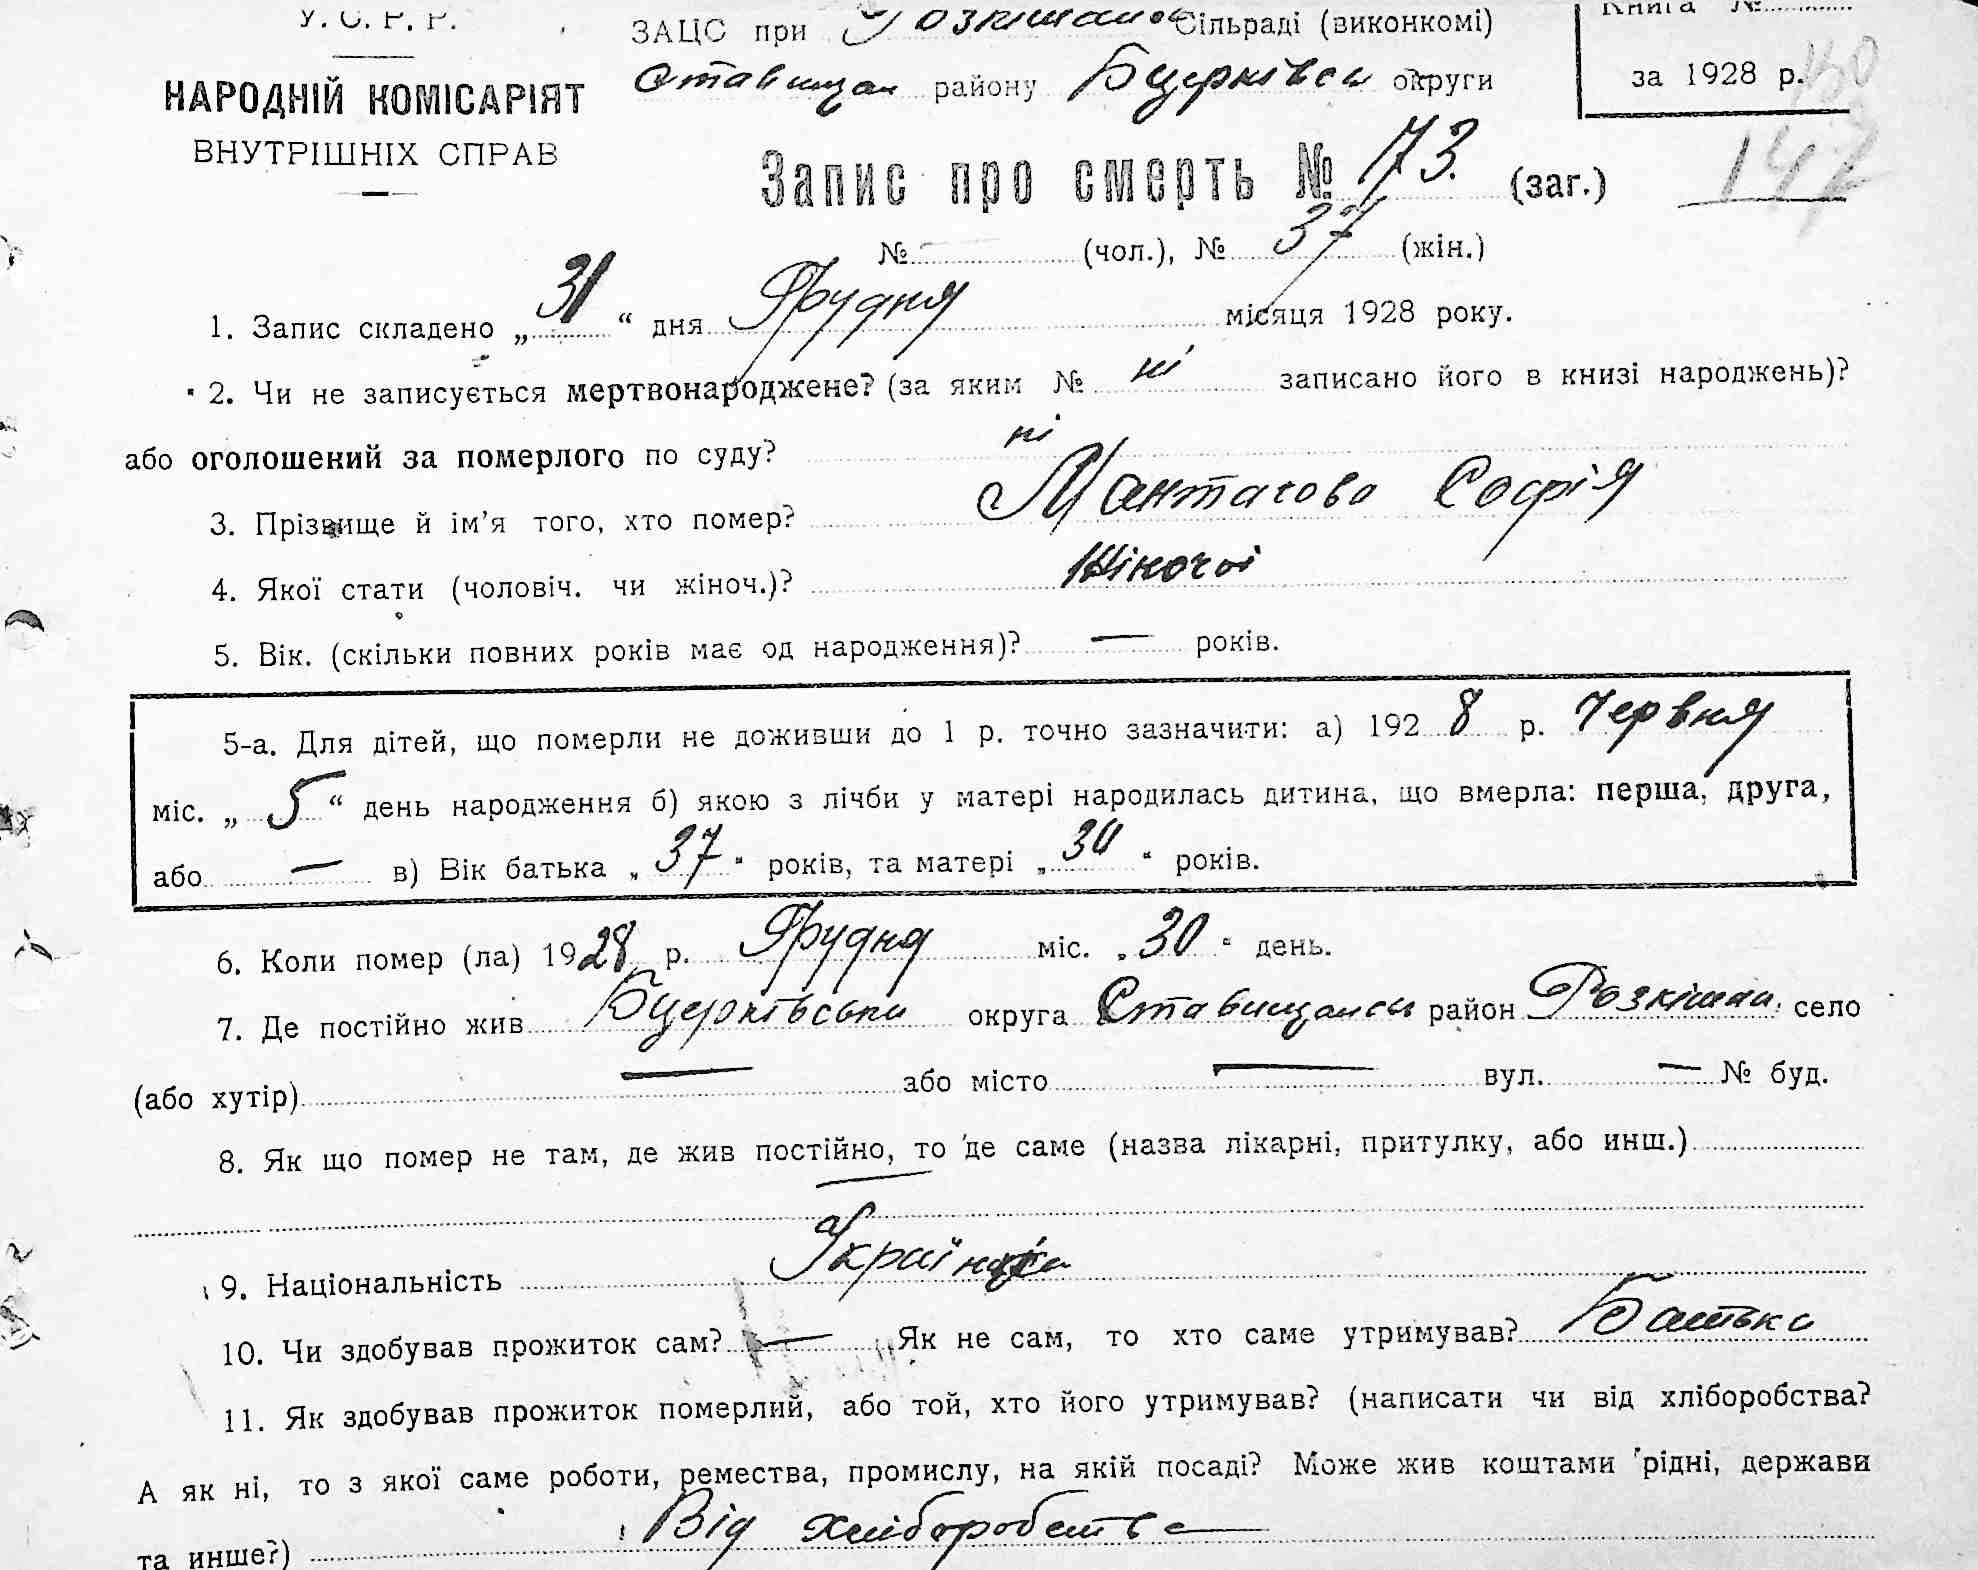 У. С. Р. Р.
НАРОДНІЙ КОМІСАРІЯТ
ВНУТРІШНІХ СПРАВ
ЗАЦС при Розкішанск Сільраді (виконкомі)
Ставищан району Бцерківск округи
Книга №
за 1928 р. 150
147
Запис про смерть № 73. (заг.)
№ — (чол.), № 37 (жін.)
1. Запис складено „31“ дня Грудня місяця 1928 року.
2. Чи не записується мертвонароджене? (за яким № ні записано його в книзі народжень)?
або оголошений за померлого по суду? ні
3. Прізвище й ім’я того, хто помер? Мантачова Софія
4. Якої стати (чоловіч. чи жіноч.)? Жіночої
5. Вік. (скільки повних років має од народження)? — років.
5-а. Для дітей, що померли не доживши до 1 р. точно зазначити: а) 1928 р. Червня
міс. „5“ день народження б) якою з лічби у матері народилась дитина, що вмерла: перша, друга,
або — в) Вік батька „37“ років, та матері „30“ років.
6. Коли помер (ла) 1928 р. Грудня міс. „30“ день.
7. Де постійно жив Бцерківська округа Ставищанськ район Розкішан. село
(або хутір) — або місто — вул. — № буд.
8. Як що помер не там, де жив постійно, то де саме (назва лікарні, притулку, або инш.)
—
9. Національність Українка
10. Чи здобував прожиток сам? — Як не сам, то хто саме утримував? Батько
11. Як здобував прожиток померлий, або той, хто його утримував? (написати чи від хліборобства?
А як ні, то з якої саме роботи, ремества, промислу, на якій посаді? Може жив коштами рідні, держави
та инше?) Від хліборобства